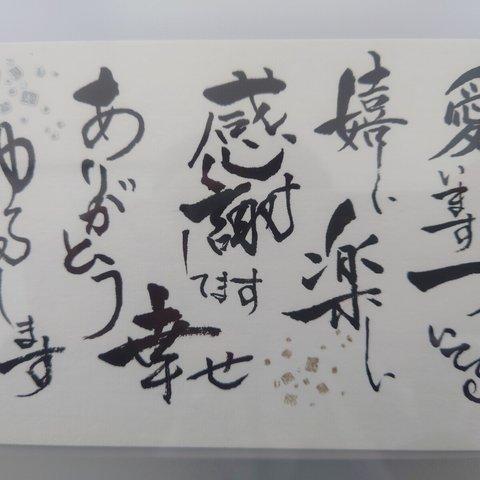 愛います
ついてる
嬉しい
楽しい
感謝してます
幸せ
ありがとう
ゆるします